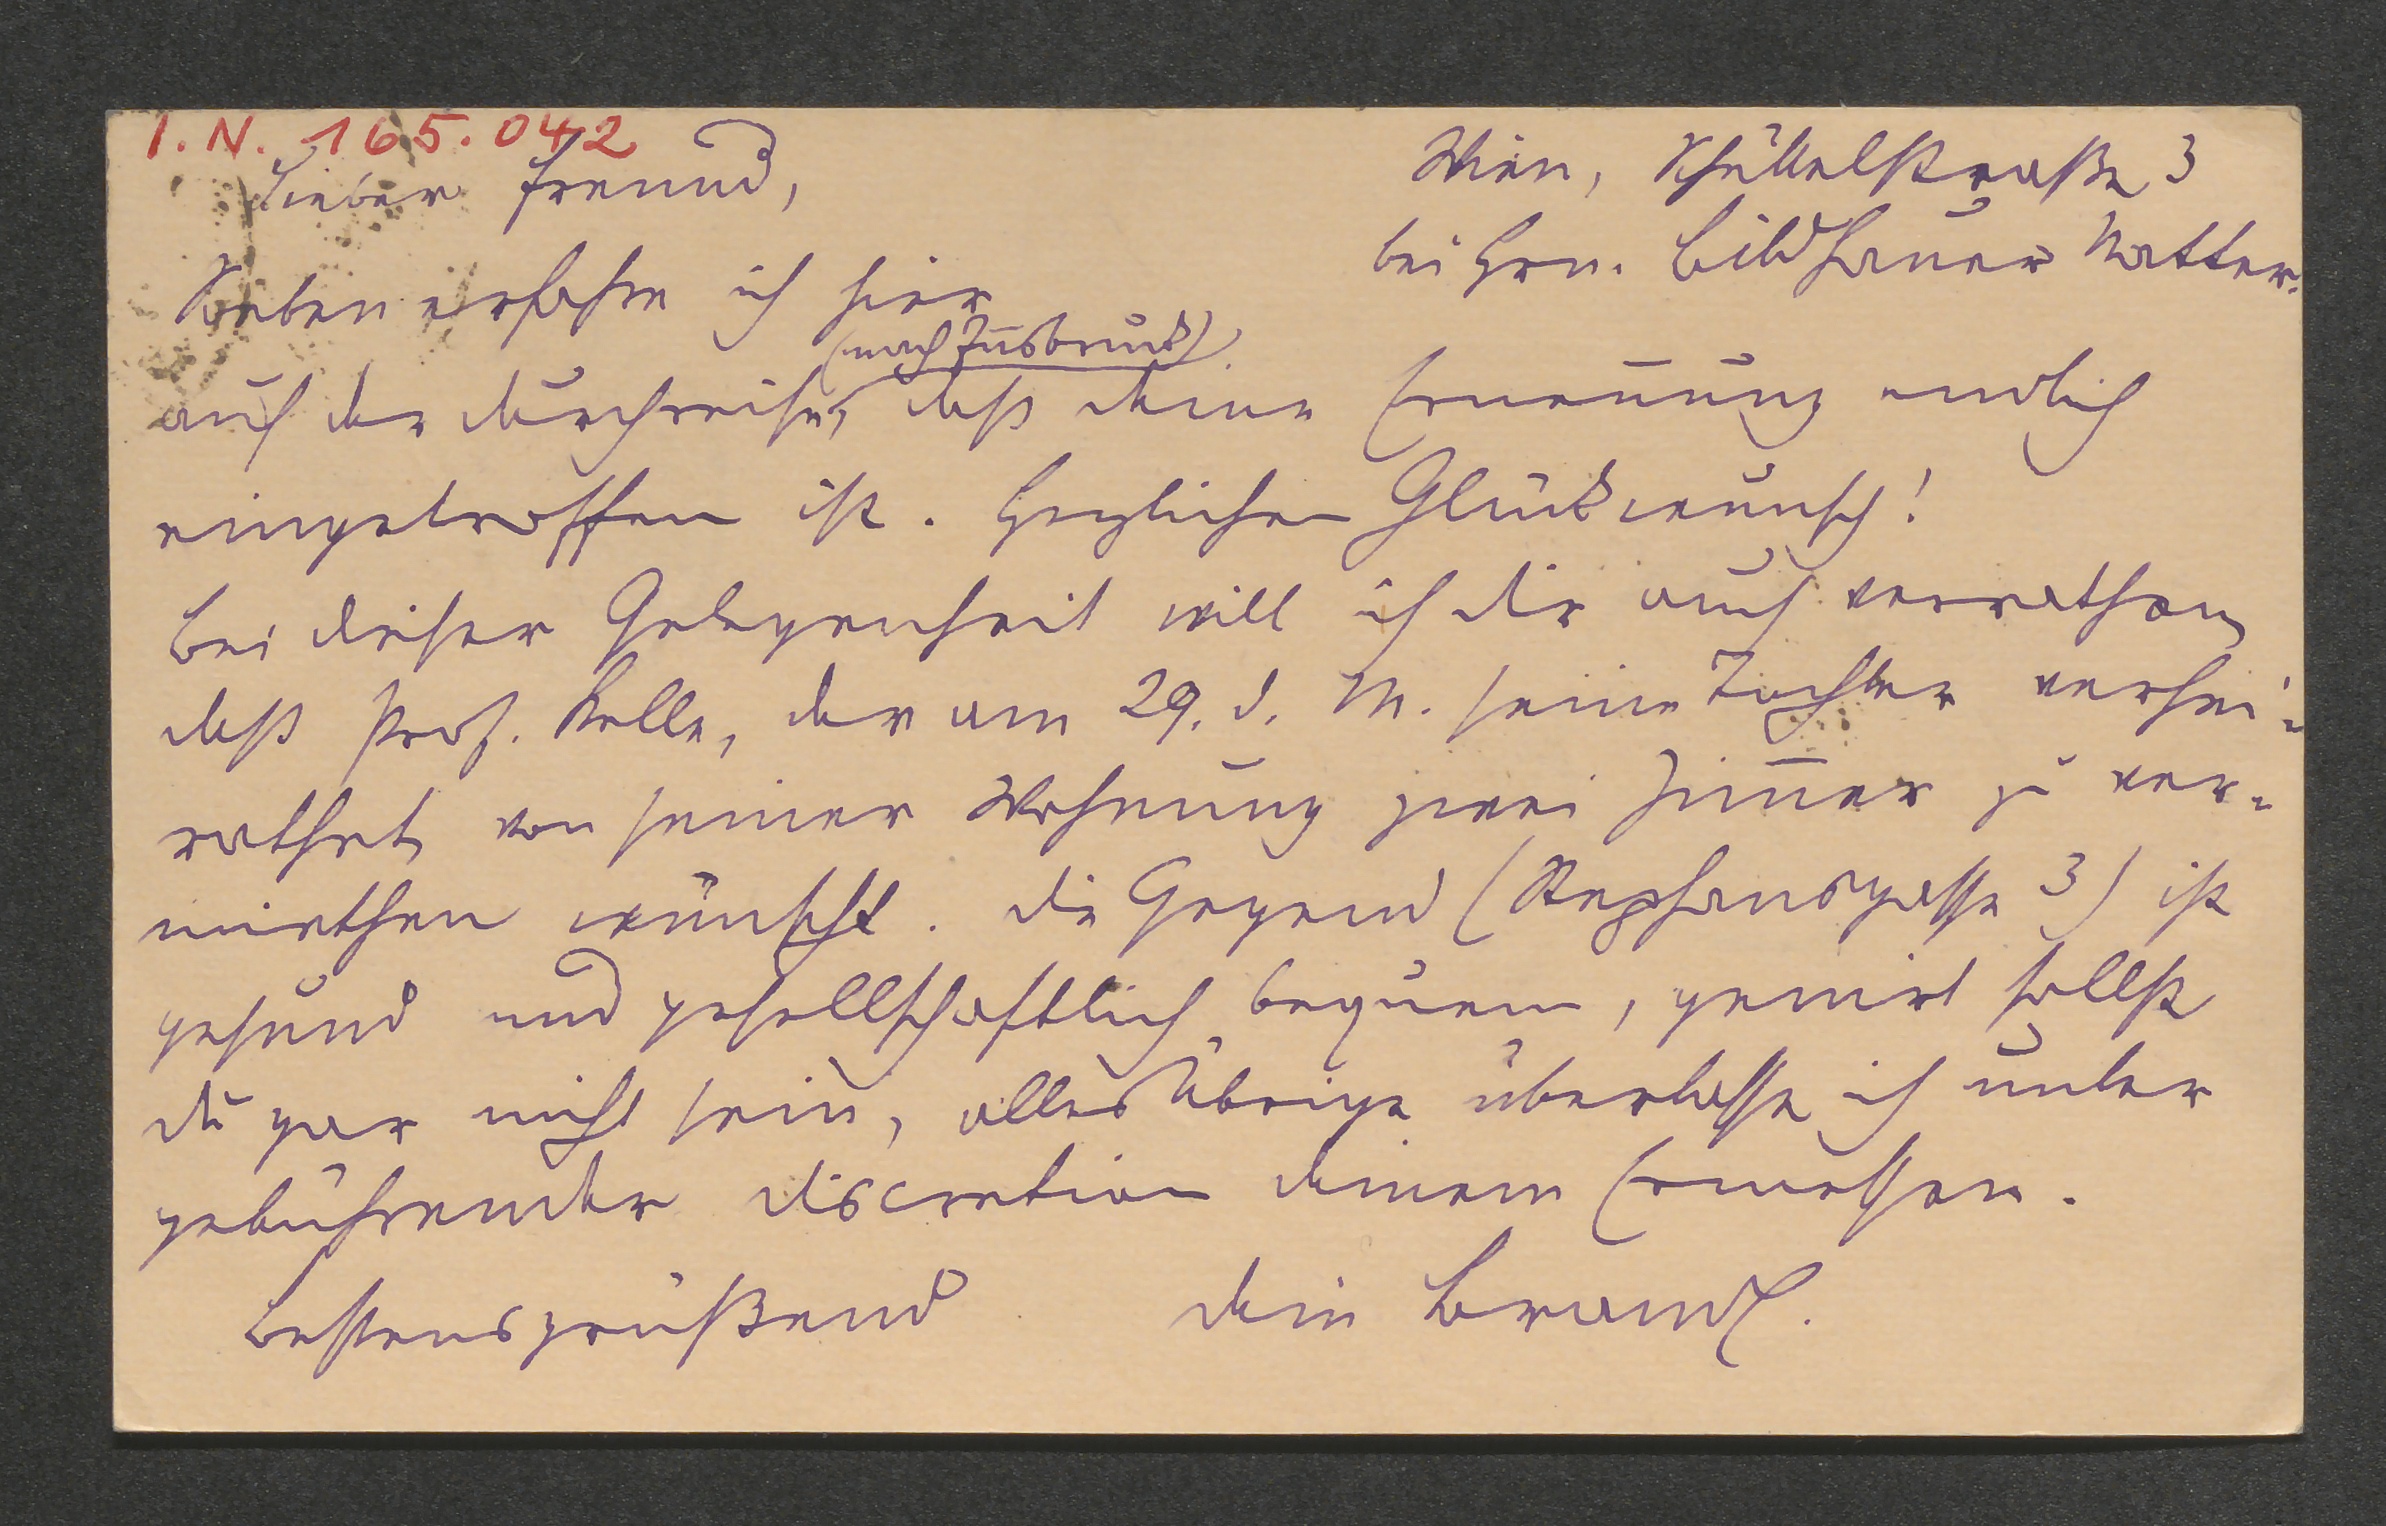 I. N. 165.042
Lieber Freund,
Wien, Schüttelstraße 3
bei Hrn. Bildhauer Natter.
Soeben erfahre ich hier
(nach Insbruck)
auf der Durchreise, daß deine Ernen̄ung endlich
eingetroffen ist. Herzlichen Glückwunsch!
Bei dieser Gelegenheit will ich dir auch verrathen,
daß Prof. Kelle, der am 29. d. M. seine Tochter verhei-
rathet, von seiner Wohnung zwei Zim̄er zu ver-
miethen wünscht. Die Gegend (Stephansgasse 3) ist
gesund und gesellschaftlich bequem, genirt sollst
du gar nicht sein, alles Übrige überlasse ich unter
gebührender Discretion deinem Ermessen.
Bestens grüßend Dein Brandl.